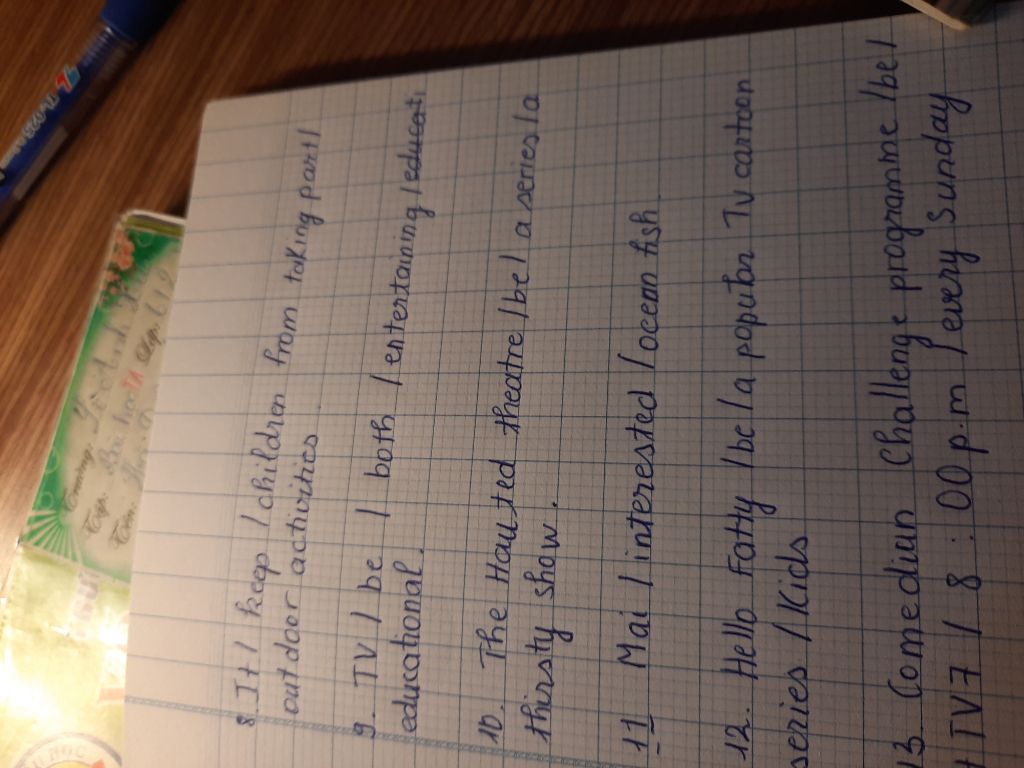 8. It / keep / children from taking part /
outdoor activities
9. TV / be / both / entertaining / educati
educational.
10. The Hauted theatre / be / a series / a
thirsty show.
11 Mai / interested / ocean fish.
12. Hello Fatty / be / a popular TV cartoon
series / Kids
13 Comediun Challenge programme / be /
TV7 / 8 : 00 p.m / every Sunday
TL-025